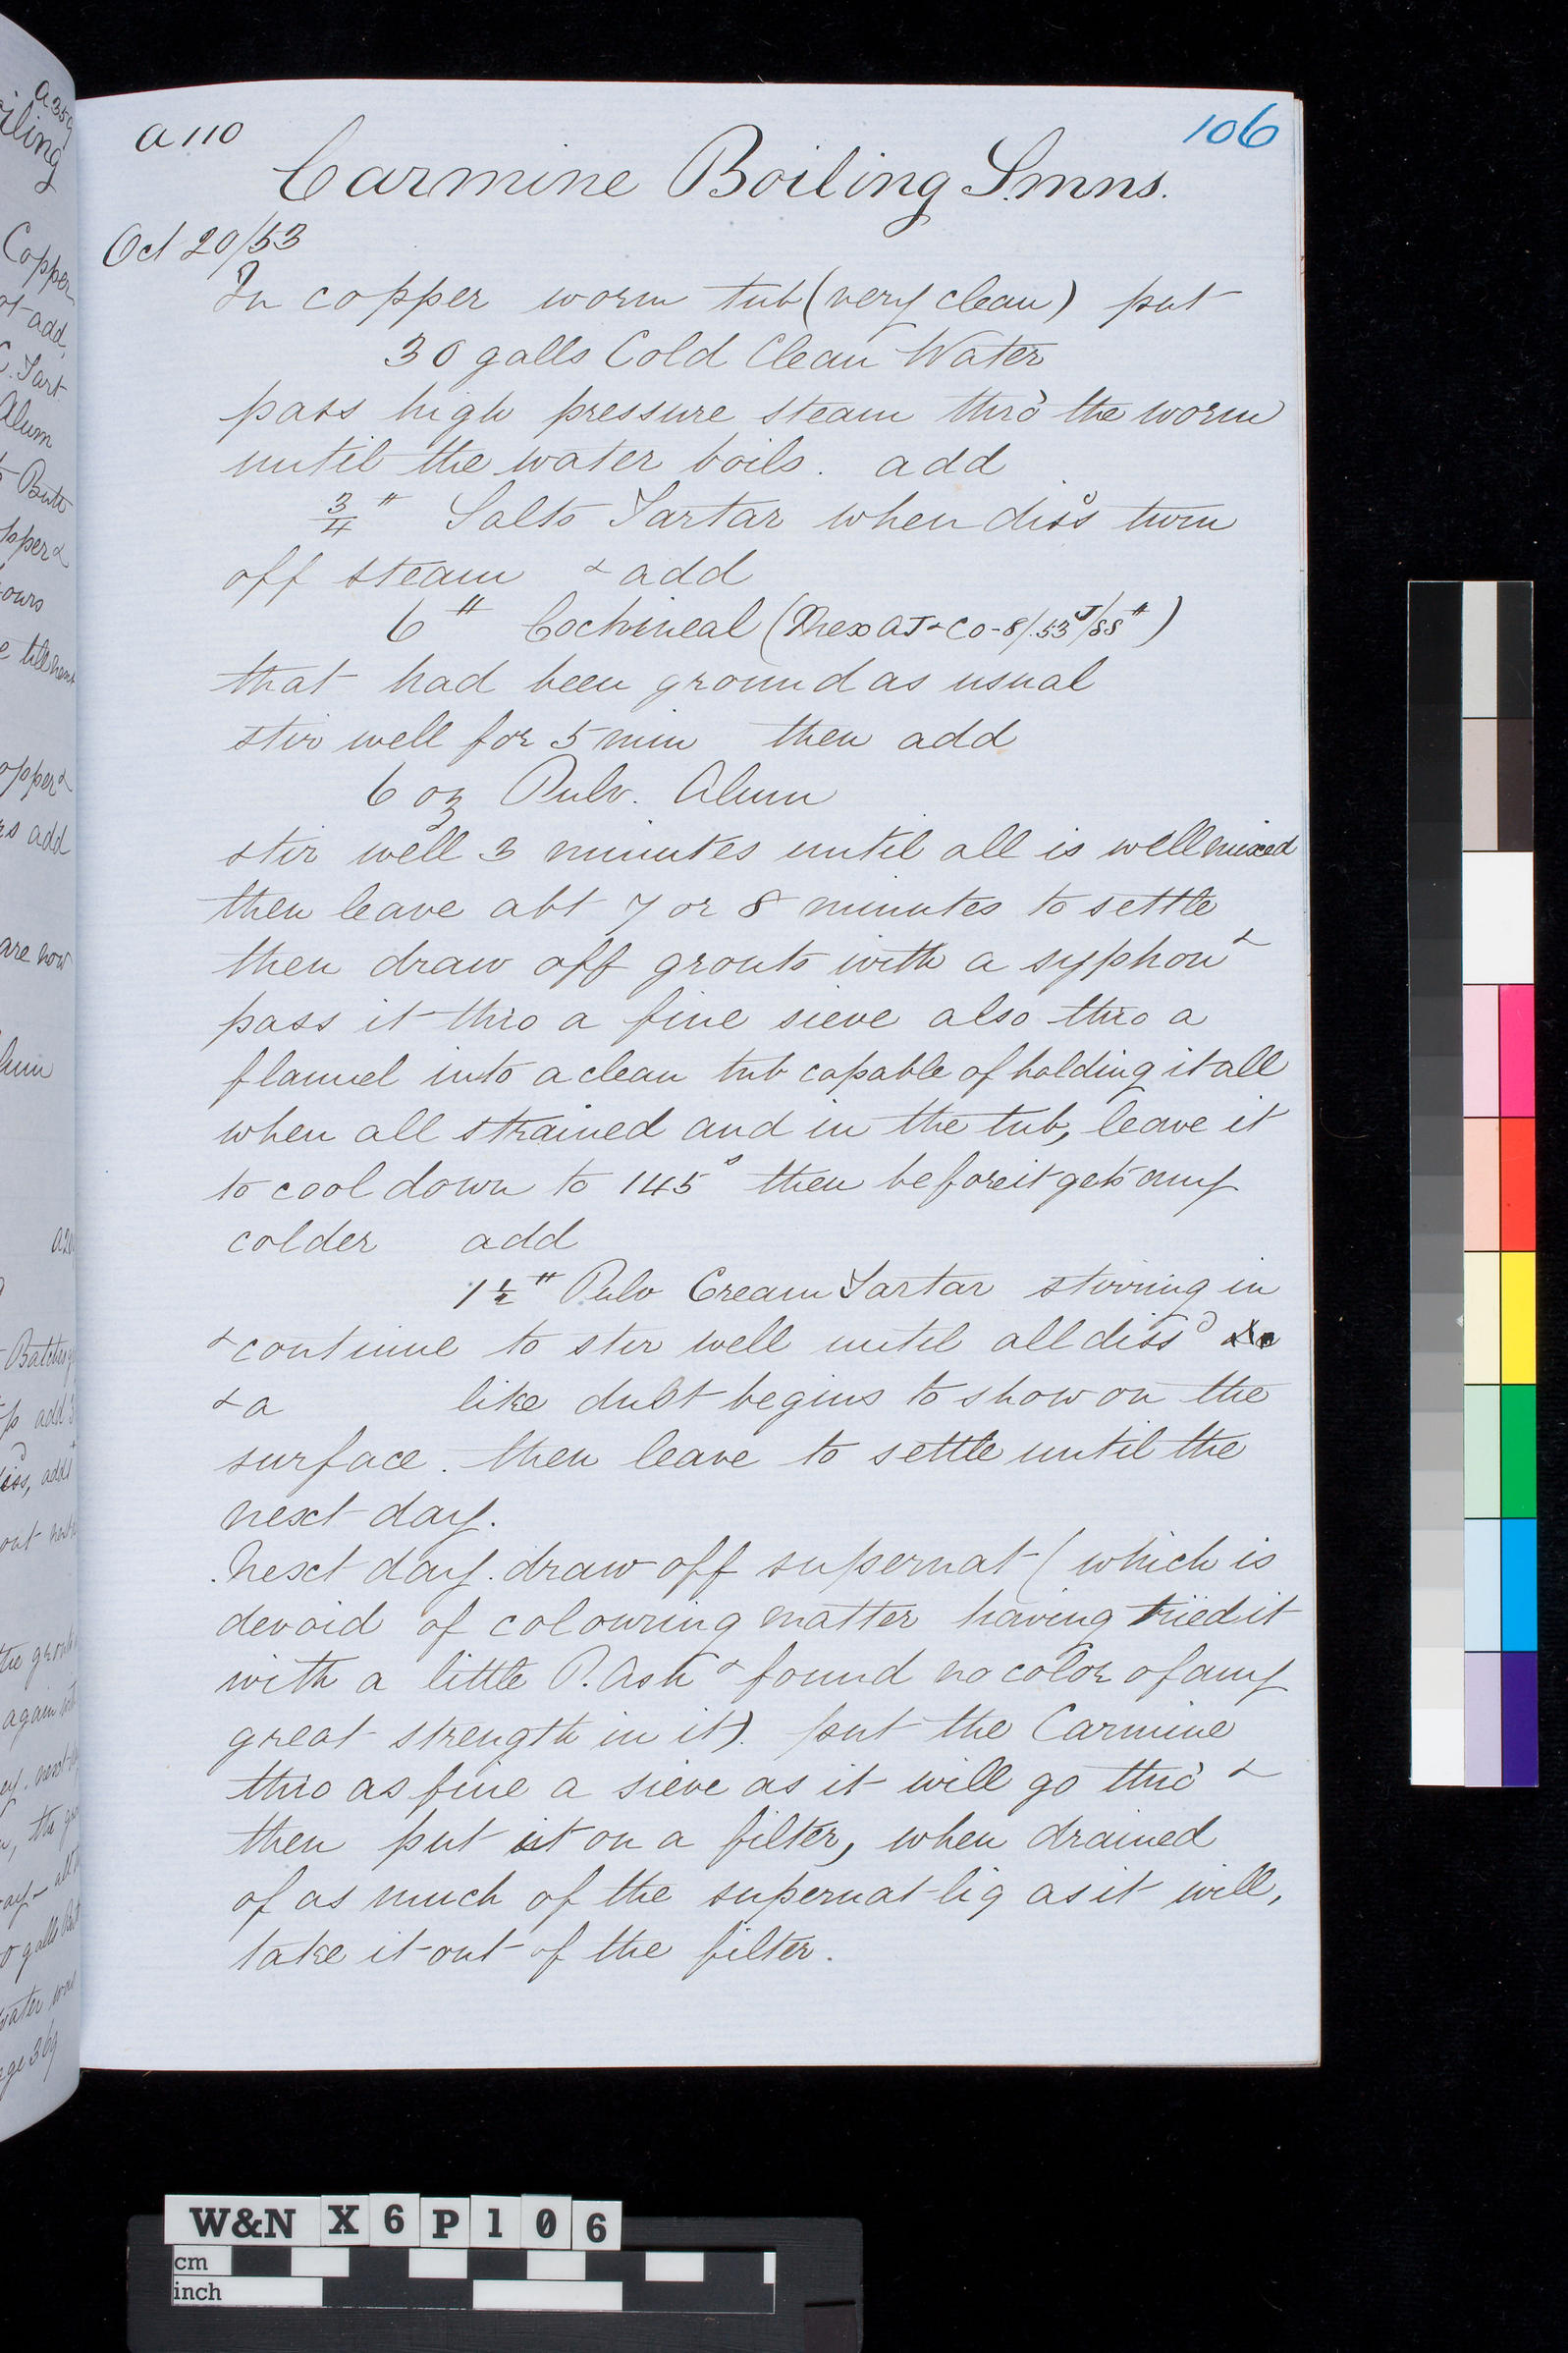 a 110
106
Carmine Boiling S.mns.
Oct 20/53
In copper worm tub (very clean) put
30 galls Cold Clean Water
pass high pressure steam thro' the worm
until the water boils. add
3/4 " Salts Tartar when diss turn
off steam & add
6 " Cochineal (Mex AJ & Co - 8/.53
that had been ground as usual
stir well for 5 min then add
6 oz Pulv. Alum
stir well 3 minutes until all is well mixed
then leave abt 7 or 8 minutes to settle
then draw off grouts with a syphon &
pass it thro a fine sieve also thro a
flannel into a clean tub capable of holding it all
when all strained and in the tub, leave it
to cool down to 145° then before it gets any
colder add
1 1/2 " Pulv Cream Tartar stirring in
& continue to stir well until all dissd
& a like dust begins to show on the
surface. then leave to settle until the
next day.
Next day. draw off supernat (which is
devoid of colouring matter having tried it
with a little P. Ash & found no color of any
great strength in it). put the Carmine
thro as fine a sieve as it will go thro' &
then put it on a filter, when drained
of as much of the supernat liq as it will,
take it out of the filter.
a359
iling
Copper
add,
C. Tart.
Alum
pper &
ours
opper &
rs add
are now
W&N X 6 P 1 0 6
cm
inch